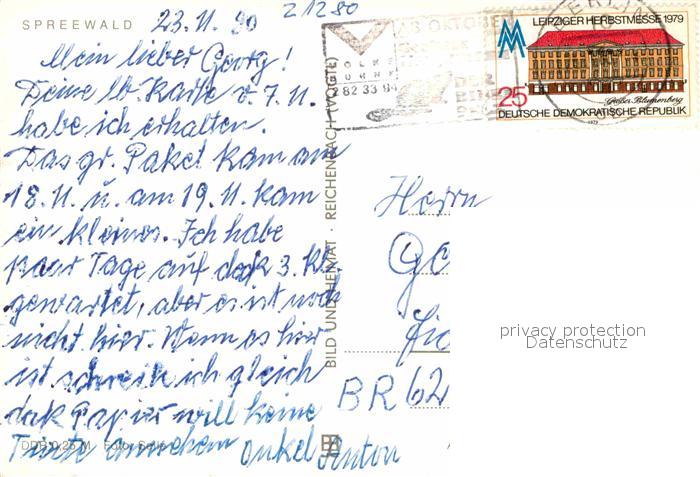 SPREEWALD
23.11.80
21280
Mein lieber Georg!
Deine lb. Karte v. 7.11.
habe ich erhalten.
Das gr. Paket kam am
18.11. u. am 19.11. kam
ein kleines. Ich habe
paar Tage auf das 3. Kl.
gewartet, aber es ist noch
nicht hier. Wenn es hier
ist schreib ich gleich
das Papier will keine
Tinte annehmen Onkel Anton
BILD UND HEIMAT · REICHENBACH (VOGTL)
13. OKTOBER
82 33 94
BERLIN
LEIPZIGER HERBSTMESSE 1979
25
Großer Blumenberg
DEUTSCHE DEMOKRATISCHE REPUBLIK
1979
Herrn
Ge
BR 62
privacy protection
Datenschutz